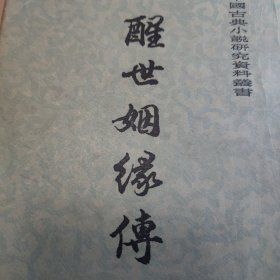 國古典小說研究資料叢書
醒世姻緣傳